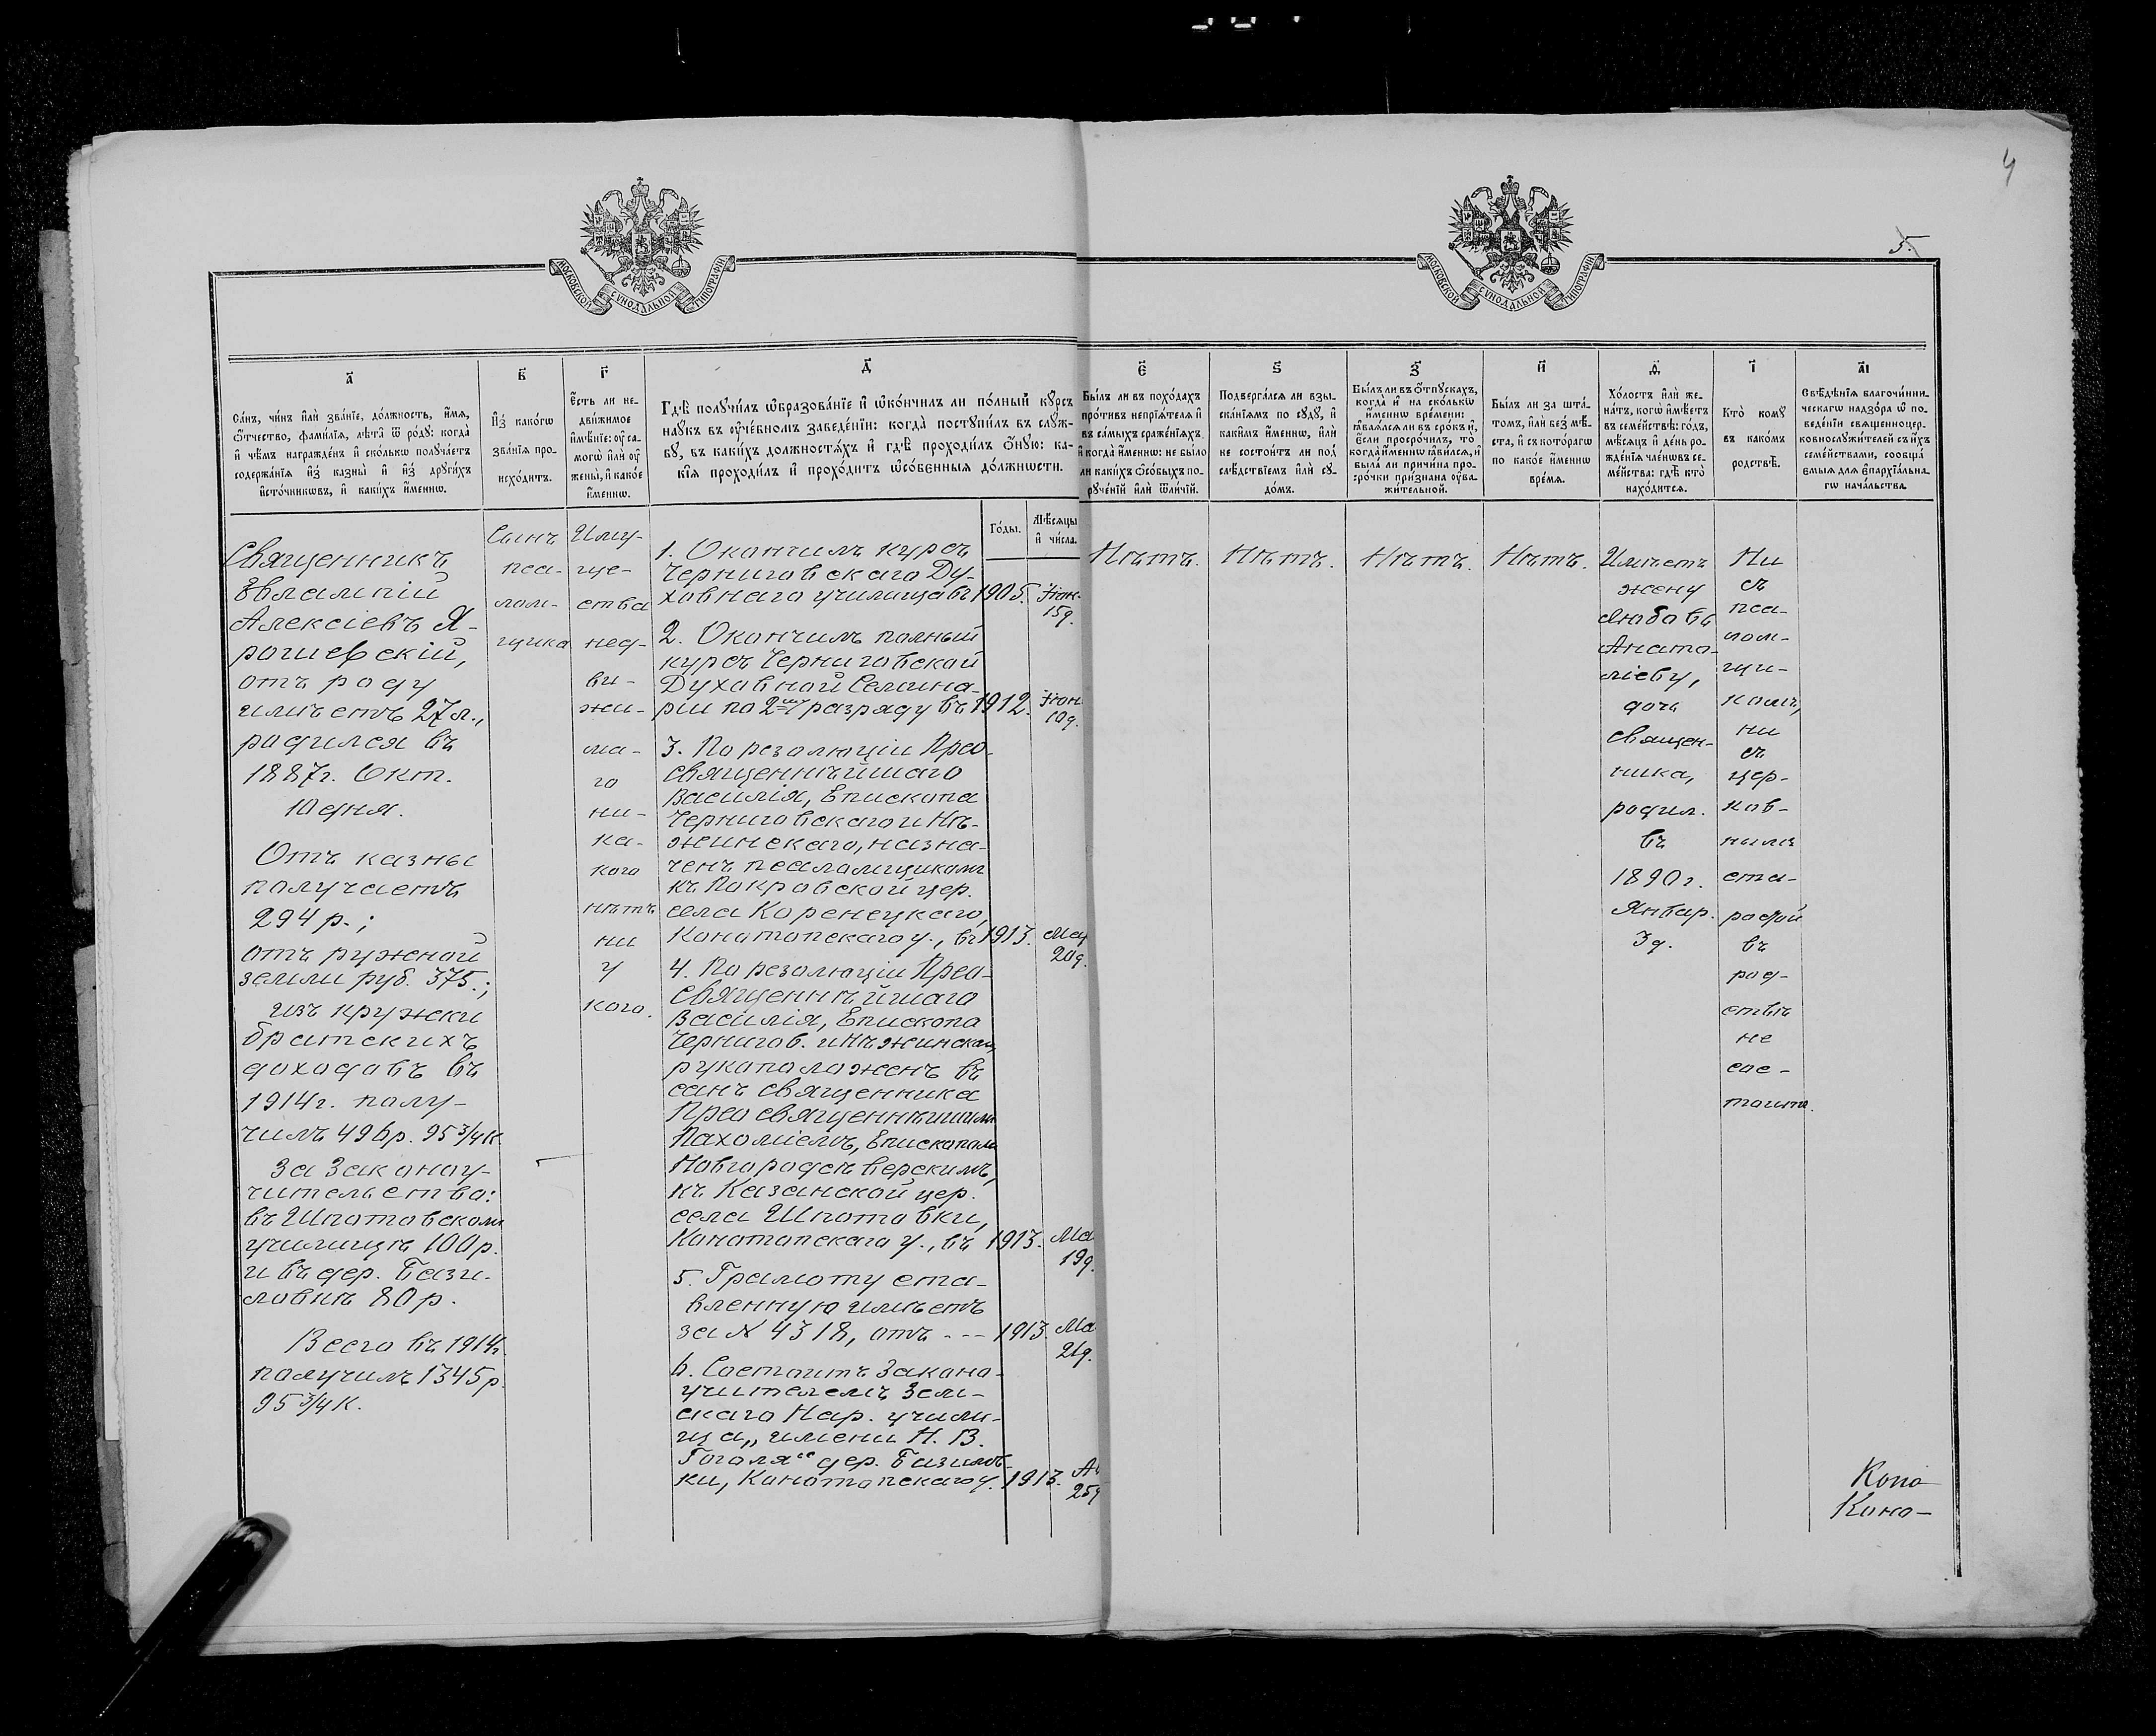 4
5.
МОСКОВСКОЙ СѴНОДАЛЬНОЙ ТИПОГРАФІИ
МОСКОВСКОЙ СѴНОДАЛЬНОЙ ТИПОГРАФІИ
а҃
Са́нъ, чи́нъ и҆лѝ зва́нїе, до́лжность, и҆́мѧ,
ѻ҆́тчество, фами́лїѧ, лѣ́та ѿ ро́дꙋ: когда̀
и҆ чѣ́мъ награжде́нъ и҆ ско́лькѡ полꙋча́етъ
содержа́нїѧ и҆з̾ казны̀ и҆ и҆з̾ дрꙋги́хъ
и҆сто́чникѡвъ, и҆ каки́хъ и҆́меннѡ.
в҃
И҆з̾ како́гѡ
зва́нїѧ про-
исхо́дитъ.
г҃
Є҆́сть ли не-
дви́жимое
и҆мѣ́нїе: ᲂу҆ са-
могѡ̀ и҆лѝ ᲂу҆
жены̀, и҆ како́е
и҆́меннѡ.
д҃
Гдѣ̀ полꙋчи́лъ ѡ҆бразова́нїе и҆ ѡ҆ко́нчилъ ли по́лный кꙋ́рсъ
наꙋ́къ въ ᲂу҆че́бномъ заведе́нїи: когда̀ постꙋпи́лъ въ слꙋ́ж-
бꙋ, въ каки́хъ должностѧ́хъ и҆ гдѣ̀ проходи́лъ ѻ҆́нꙋю: ка-
кі́ѧ проходи́лъ и҆ прохо́дитъ ѡ҆со́бенныѧ до́лжнѡсти.
Го́ды.
Мѣ́сѧцы
и҆ чи́сла.
є҃
Бы́лъ ли въ похо́дахъ
про́тивъ непрїѧ́телѧ и҆
въ са́мыхъ сраже́нїѧхъ
и҆ когда̀ и҆́меннѡ: не бы́ло
ли каки́хъ ѻ҆со́быхъ по-
рꙋче́нїй и҆лѝ ѿли́чїй.
ѕ҃
Подверга́лсѧ ли взы-
ска́нїѧмъ по сꙋдꙋ̀, и҆
каки̑мъ и҆́меннѡ, и҆лѝ
не состои́тъ ли под̾
слѣ́дствїемъ и҆лѝ сꙋ-
до́мъ.
з҃
Бы́лъ ли въ ѻ҆́тпꙋскахъ,
когда̀ и҆ на ско́лькѡ
и҆́меннѡ вре́мени:
ꙗ҆влѧ́лсѧ ли въ сро́къ и҆,
є҆́сли просро́чилъ, то
когда̀ и҆́меннѡ ꙗ҆ви́лсѧ, и҆
была̀ ли причи́на про-
сро́чки при́знана ᲂу҆ва-
жи́тельной.
и҃
Бы́лъ ли за шта́-
томъ, и҆лѝ без̾ мѣ́-
ста, и҆ съ кото́рагѡ
по како́е и҆́меннѡ
вре́мѧ.
ѳ҃
Хо́лостъ и҆лѝ же-
на́тъ, когѡ̀ и҆мѣ́етъ
въ семе́йствѣ: го́дъ,
мѣ́сѧцъ и҆ де́нь ро-
жде́нїѧ чле́нѡвъ се-
ме́йства: гдѣ̀ кто̀
нахо́дитсѧ.
і҃
Кто̀ комꙋ̀
въ како́мъ
родствѣ̀.
а҃і
Свѣ́дѣнїѧ благочи́нни-
ческагѡ надзо́ра ѡ҆ по-
веде́нїи свѧще́нноцер-
ковнослꙋжи́телей съ и҆́хъ
семе́йствами, сообща́-
емыѧ для̀ є҆парх їа́льна-
гѡ нача́льства.
Священникъ
Евлампій
Алексіевъ Я-
рошевскій,
отъ роду
имѣетъ 27 л.,
родился въ
1887г. Окт.
10 дня.
Отъ казны
получаетъ
294 р.;
отъ ружной
земли руб. 375.;
изъ кружки
братскихъ
доходовъ въ
1914г. полу-
чилъ 496р. 95 3/4 к.
За Законоу-
чительство:
въ Шпотовскомъ
училищѣ 100р.
и въ дер. Бази-
ловкѣ 80р.
Всего въ 1914г.
получилъ 1345р.
95 3/4 к.
Сынъ
пса-
лом-
щика
Иму-
ще-
ства
нед-
ви-
жи-
ма-
го
ни-
ка-
кого
нѣтъ
ни
у
кого.
1. Окончилъ курсъ
Черниговскаго Ду-
ховнаго училища въ 1905. Іюн. 15д.
2. Окончилъ полный
курсъ Черниговской
Духовной Семина-
ріи по 2му разряду въ 1912. Іюн. 10д.
3. По резолюціи Прео-
священнѣйшаго
Василія, Епископа
Черниговскаго и Нѣ-
жинскаго, назна-
ченъ псаломщикомъ
къ Покровской цер.
села Коренецкаго,
Конотопскаго у., въ 1913. 20д.
4. По резолюціи Прео-
священнѣйшаго
Василія, Епископа
Чернигов. и Нѣжинскаго,
рукоположенъ въ
санъ священника
Преосвященнѣйшимъ
Пахоміемъ, Епископомъ
Новгородсѣверскимъ,
къ Казанской цер.
села Шпотовки,
Конотопскаго у., въ 1913. Ма 19д.
5. Грамоту ста-
вленную имѣетъ
за № 4318, отъ --- 1913. Ма 21д.
6. Состоитъ Законо-
учителемъ Зем-
скаго Нар. учили-
ща „имени Н. В.
Гоголя“ дер. Базилов-
ки, Конотопскаго у. 1913. 25д
Нѣтъ.
Нѣтъ.
Нѣтъ.
Нѣтъ.
Имѣетъ
жену
Любовь
Анато-
ліеву,
дочь
священ-
ника,
родил.
въ
1890г.
Январ.
3д.
Ни
съ
пса-
лом-
щи-
комъ,
ни
съ
цер-
ков-
нымъ
ста-
ростой
въ
род-
ствѣ
не
сос-
тоитъ.
Коно-